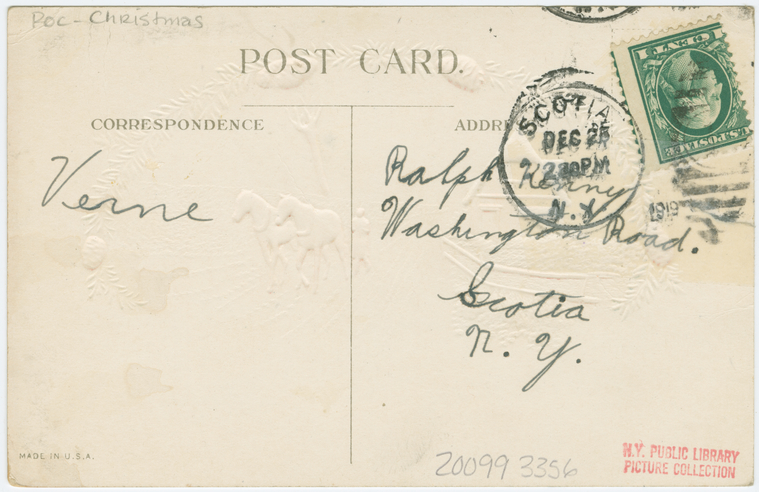 PoC-Christmas
POST CARD.
CORRESPONDENCE
Verne
Ralph Kenny
Washington Road.
Scotia
N. Y.
SCOTIA
DEC 25
2 30PM
N.Y.
1919
1 CENT 1
U.S. POSTAGE
MADE IN U.S.A.
20099 3356
N.Y. PUBLIC LIBRARY
PICTURE COLLECTION